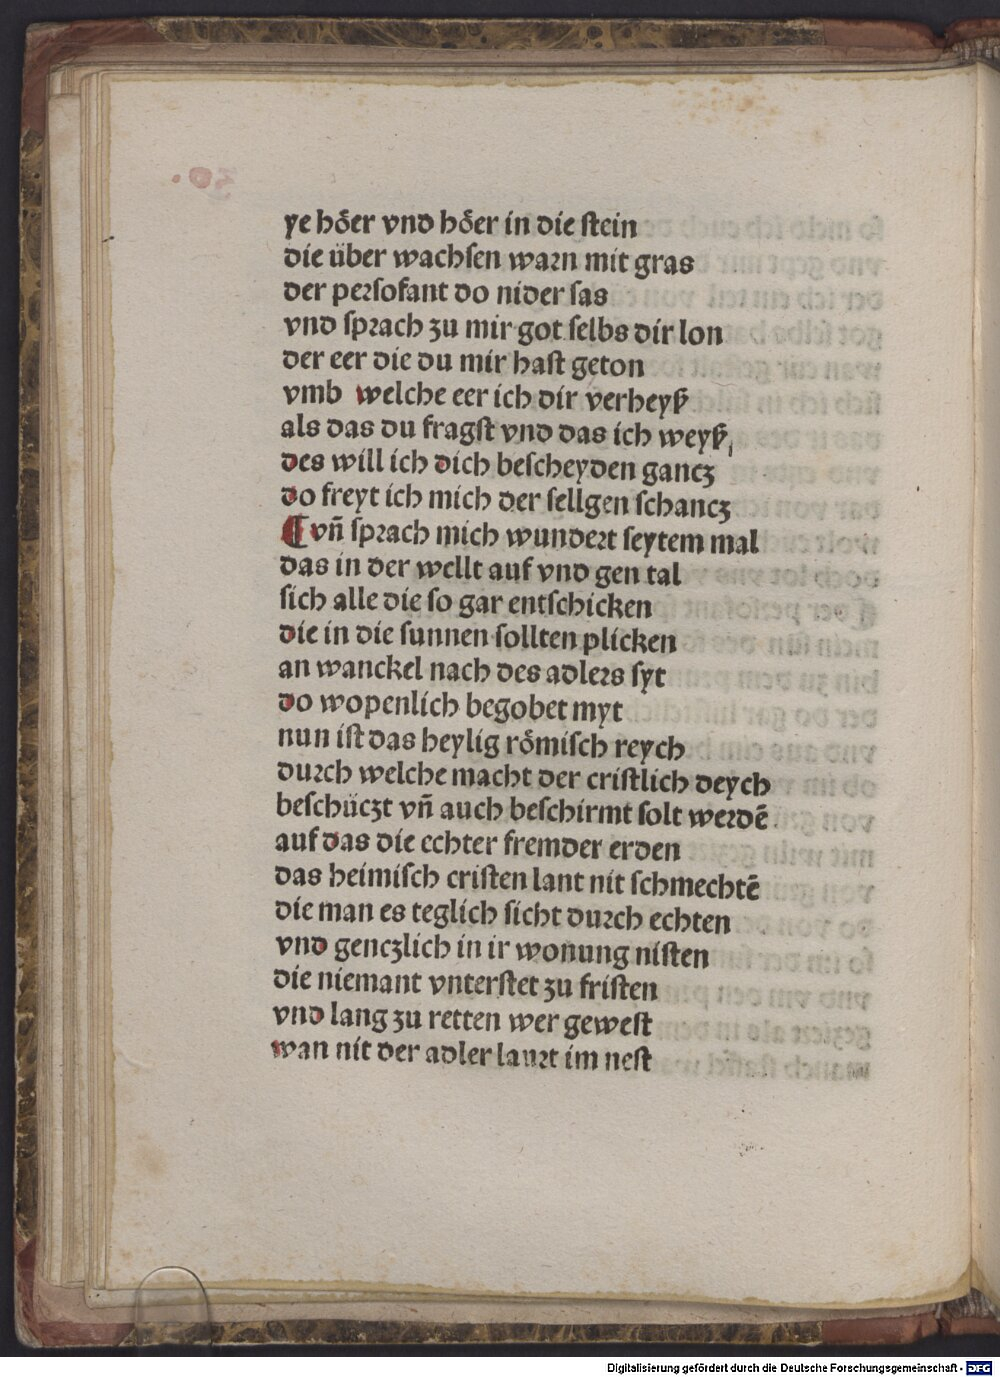 ye höer vnd höer in die stein
die über wachsen warn mit gras
der persofant do nider sas
vnd sprach zu mir got selbs dir lon
der eer die du mir hast geton
vmb welche eer ich dir verheyß
als das du fragst vnd das ich weyß
des will ich dich bescheyden gancz
do freyt ich mich der sellgen schancz
¶ vn̄ sprach mich wundert seytem mal
das in der wellt auf vnd gen tal
sich alle die so gar entschicken
die in die sunnen sollten plicken
an wanckel nach des adlers syt
do wopenlich begobet myt
nun ist das heylig römisch reych
durch welche macht der cristlich deych
beschüczt vn̄ auch beschirmt solt werdē
auf das die echter fremder erden
das heimisch cristen lant nit schmechtē
die man es teglich sicht durch echten
vnd genczlich in ir wonung nisten
die niemant vnterstet zu fristen
vnd lang zu retten wer gewest
wan nit der adler laurt im nest
Digitalisierung gefördert durch die Deutsche Forschungsgemeinschaft - DFG